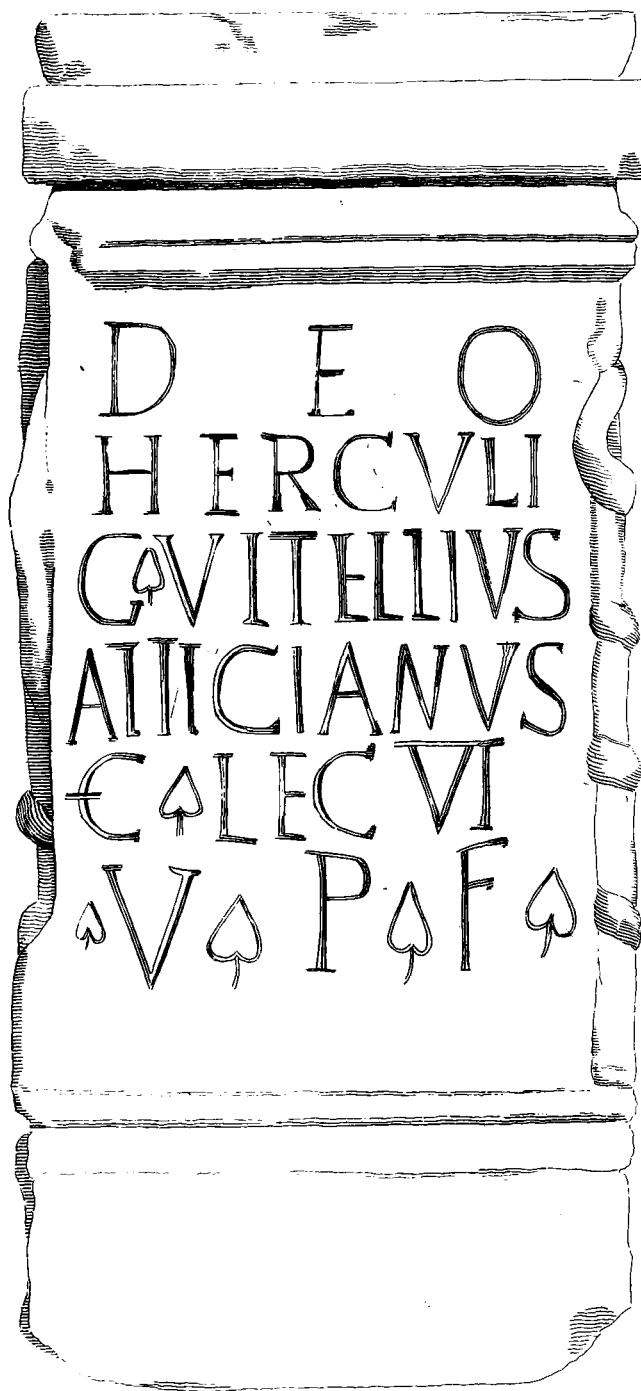 DEO
HERCVLI
G ❧ VITELLIVS
ATTICIANVS
C ❧ LEC VI
❧ V ❧ P ❧ F ❧